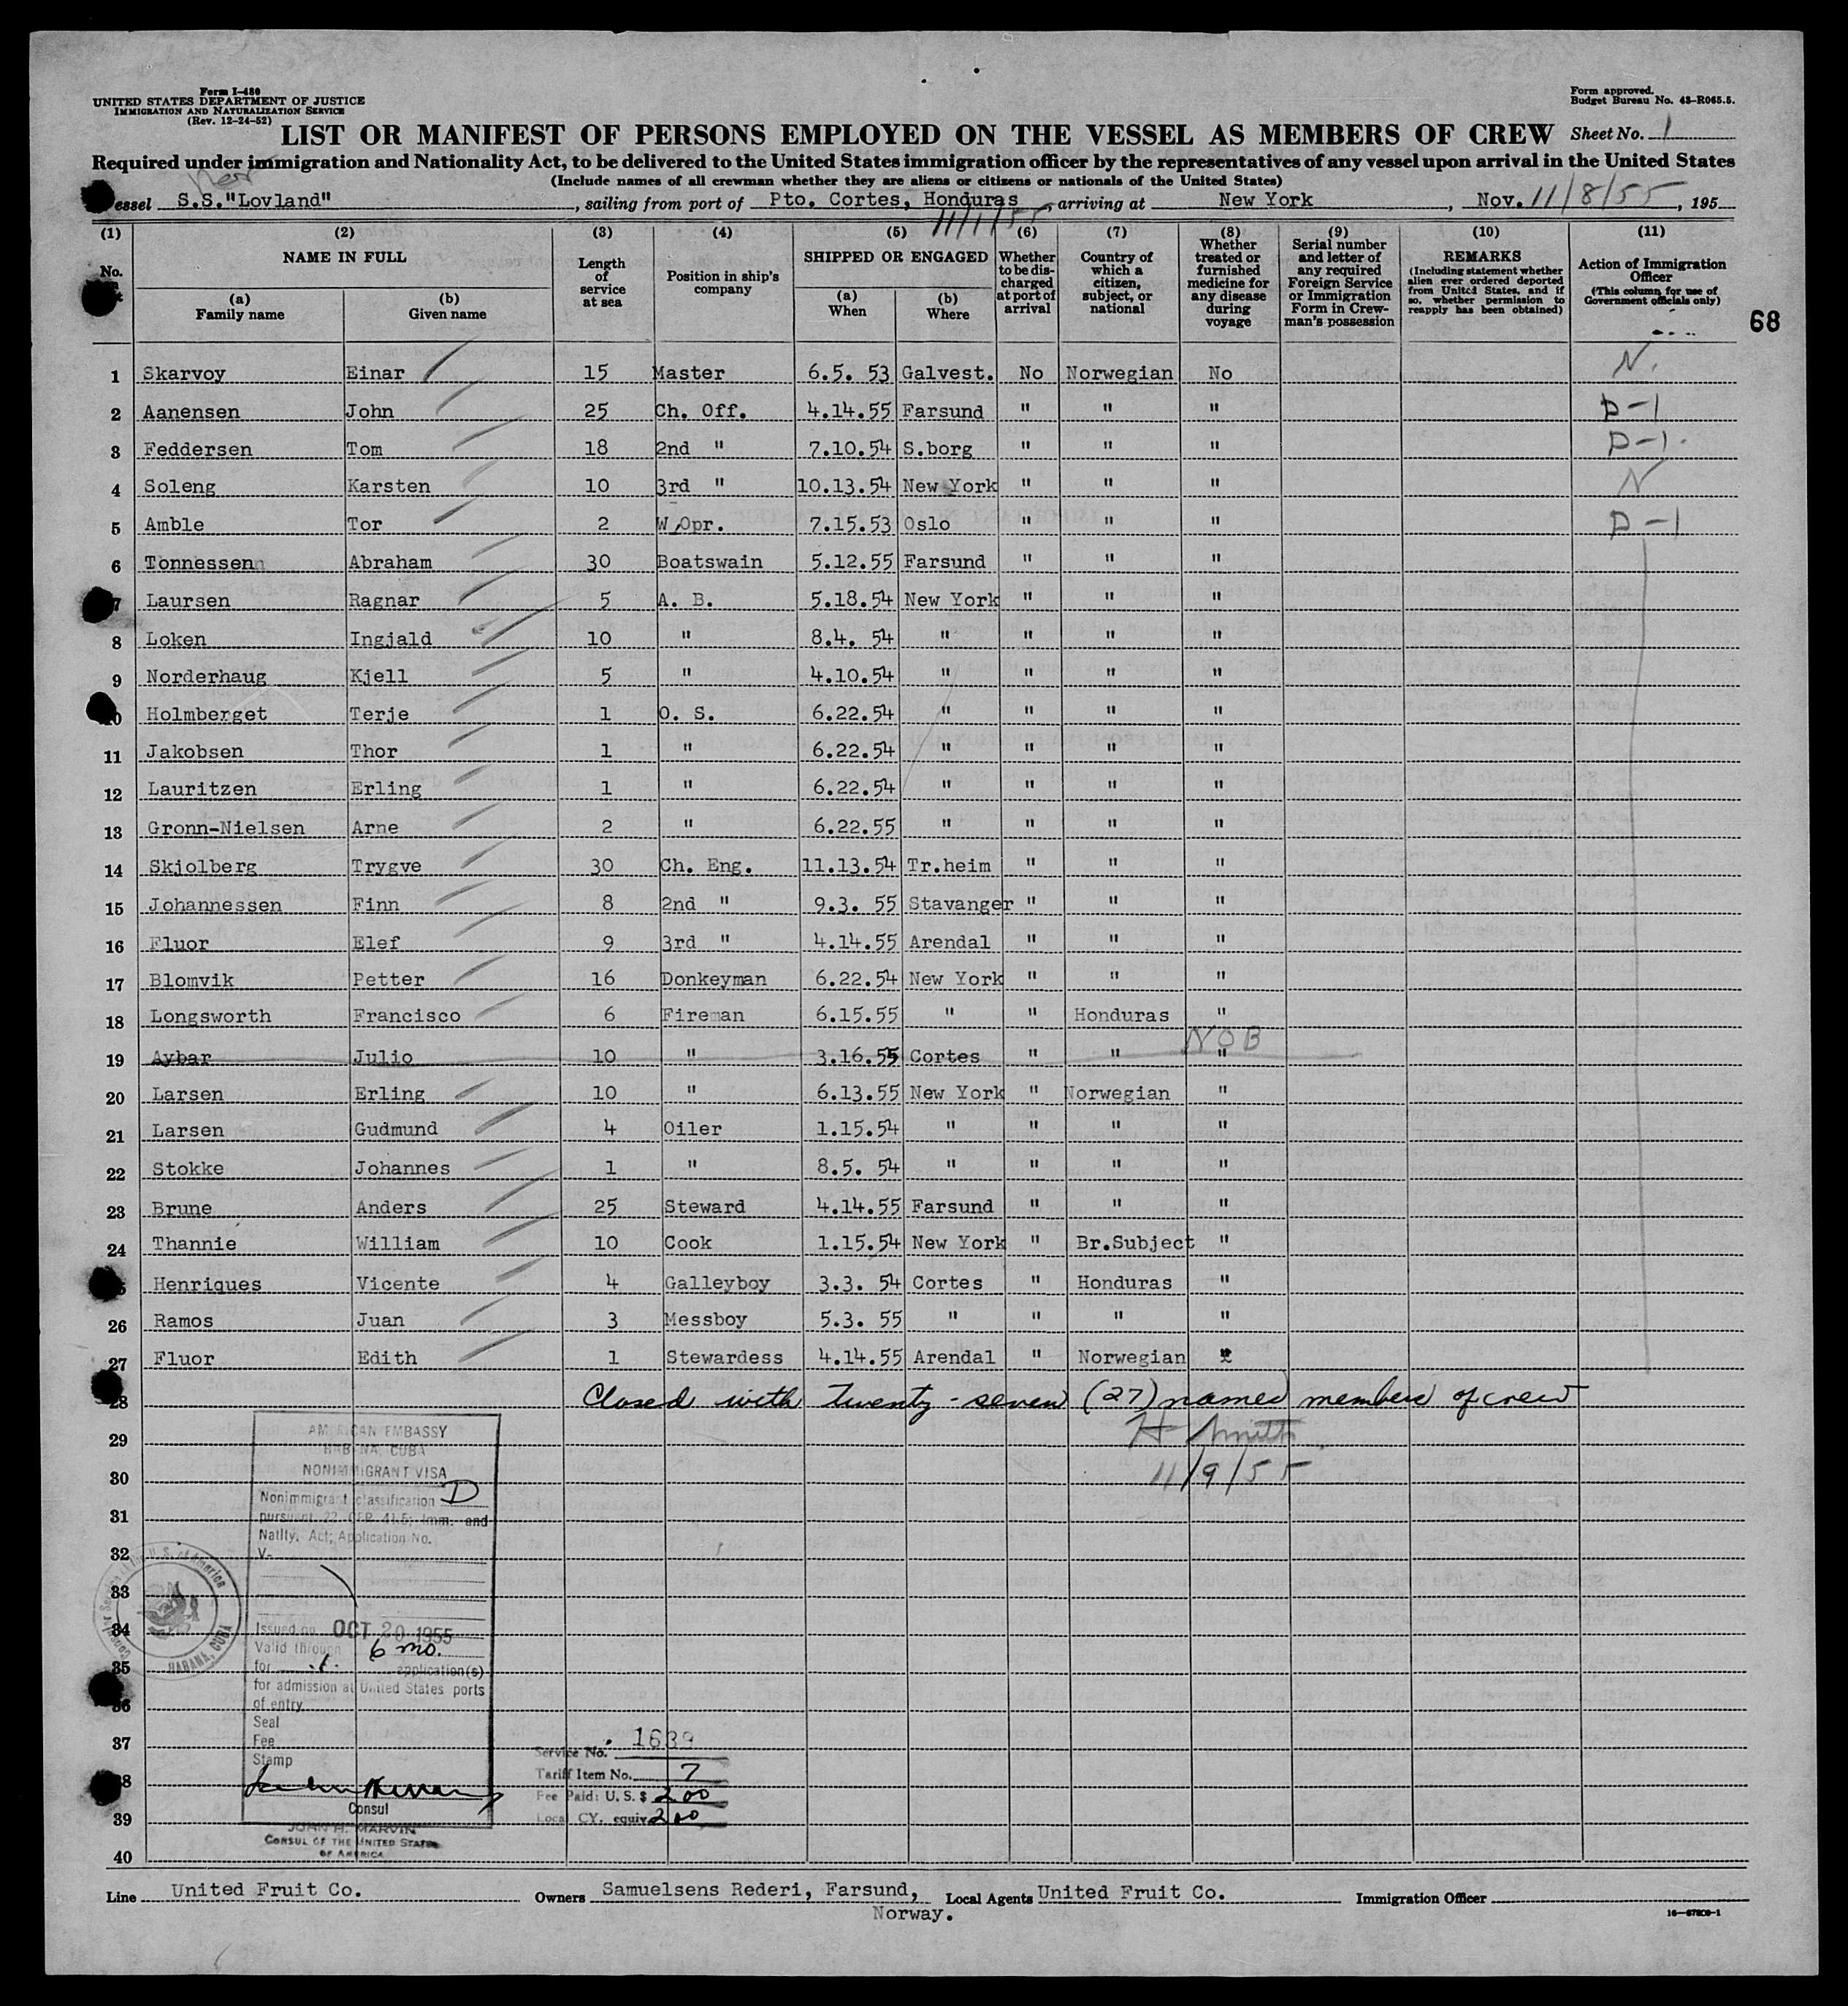 Form I-480
UNITED STATES DEPARTMENT OF JUSTICE
IMMIGRATION AND NATURALIZATION SERVICE
(Rev. 12-24-52)
Form approved.
Budget Bureau No. 43-R065.5.
LIST OR MANIFEST OF PERSONS EMPLOYED ON THE VESSEL AS MEMBERS OF CREW
Sheet No. 1
Required under immigration and Nationality Act, to be delivered to the United States immigration officer by the representatives of any vessel upon arrival in the United States
(Include names of all crewman whether they are aliens or citizens or nationals of the United States)
Nor
essel S.S."Lovland", sailing from port of Pto. Cortes, Honduras, arriving at New York, Nov. 11/8/55, 195
11/1/55
(1) (2) (3) (4) (5) (6) (7) (8) (9) (10) (11)
No.
NAME IN FULL
(a) Family name
(b) Given name
Length of service at sea
Position in ship's company
SHIPPED OR ENGAGED
(a) When
(b) Where
Whether to be discharged at port of arrival
Country of which a citizen, subject, or national
Whether treated or furnished medicine for any disease during voyage
Serial number and letter of any required Foreign Service or Immigration Form in Crewman's possession
REMARKS
(Including statement whether alien ever ordered deported from United States, and if so, whether permission to reapply has been obtained)
Action of Immigration Officer
(This column for use of Government officials only)
68
1 Skarvoy Einar 15 Master 6.5. 53 Galvest. No Norwegian No N.
2 Aanensen John 25 Ch. Off. 4.14.55 Farsund " " " D-1
3 Feddersen Tom 18 2nd " 7.10.54 S.borg " " " D-1.
4 Soleng Karsten 10 3rd " 10.13.54 New York " " " N
5 Amble Tor 2 W.Opr. 7.15.53 Oslo " " " D-1
6 Tonnessen Abraham 30 Boatswain 5.12.55 Farsund " " "
7 Laursen Ragnar 5 A. B. 5.18.54 New York " " "
8 Loken Ingjald 10 " 8.4. 54 " " " "
9 Norderhaug Kjell 5 " 4.10.54 " " " "
10 Holmberget Terje 1 O. S. 6.22.54 " " " "
11 Jakobsen Thor 1 " 6.22.54 " " " "
12 Lauritzen Erling 1 " 6.22.54 " " " "
13 Gronn-Nielsen Arne 2 " 6.22.55 " " " "
14 Skjolberg Trygve 30 Ch. Eng. 11.13.54 Tr.heim " " "
15 Johannessen Finn 8 2nd " 9.3. 55 Stavanger " " "
16 Fluor Elef 9 3rd " 4.14.55 Arendal " " "
17 Blomvik Petter 16 Donkeyman 6.22.54 New York " " "
18 Longsworth Francisco 6 Fireman 6.15.55 " " Honduras "
NOB
19 Aybar Julio 10 " 3.16.55 Cortes " " "
20 Larsen Erling 10 " 6.13.55 New York " Norwegian "
21 Larsen Gudmund 4 Oiler 1.15.54 " " " "
22 Stokke Johannes 1 " 8.5. 54 " " " "
23 Brune Anders 25 Steward 4.14.55 Farsund " " "
24 Thannie William 10 Cook 1.15.54 New York " Br.Subject "
Henriques Vicente 4 Galleyboy 3.3. 54 Cortes " Honduras "
26 Ramos Juan 3 Messboy 5.3. 55 " " " "
27 Fluor Edith 1 Stewardess 4.14.55 Arendal " Norwegian "
28 Closed with twenty-seven (27) named members of crew
29 H Smith
30 11/9/55
31
32
33
34
35
36
37
38
39
40
AMERICAN EMBASSY
HABANA, CUBA
NONIMMIGRANT VISA
Nonimmigrant classification D
pursuant 22 CFR 41.5; Imm. and
Natlty. Act; Application No.
V-
Issued on OCT 20 1955
Valid through 6 mo.
for .1. application(s)
for admission at United States ports
of entry
Seal
Fee
Stamp
Consul
JOHN H. MARVIN
CONSUL OF THE UNITED STATES
OF AMERICA
HABANA, CUBA
Service No. 1639
Tariff Item No. 7
Fee Paid: U.S. $ 2.00
Local CY. equiv 2.00
Line United Fruit Co. Owners Samuelsens Rederi, Farsund, Norway. Local Agents United Fruit Co. Immigration Officer